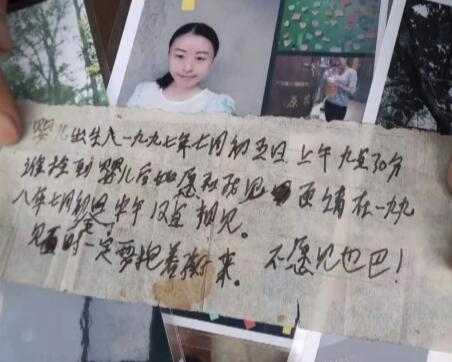 婴儿出生人一九九七年七月初五日上午九点30分
谁捡到婴儿后如愿和我见面 请在一九九
八年七月初 中午12点相见。
见面时一定要抱着孩来。 不愿见也巴!